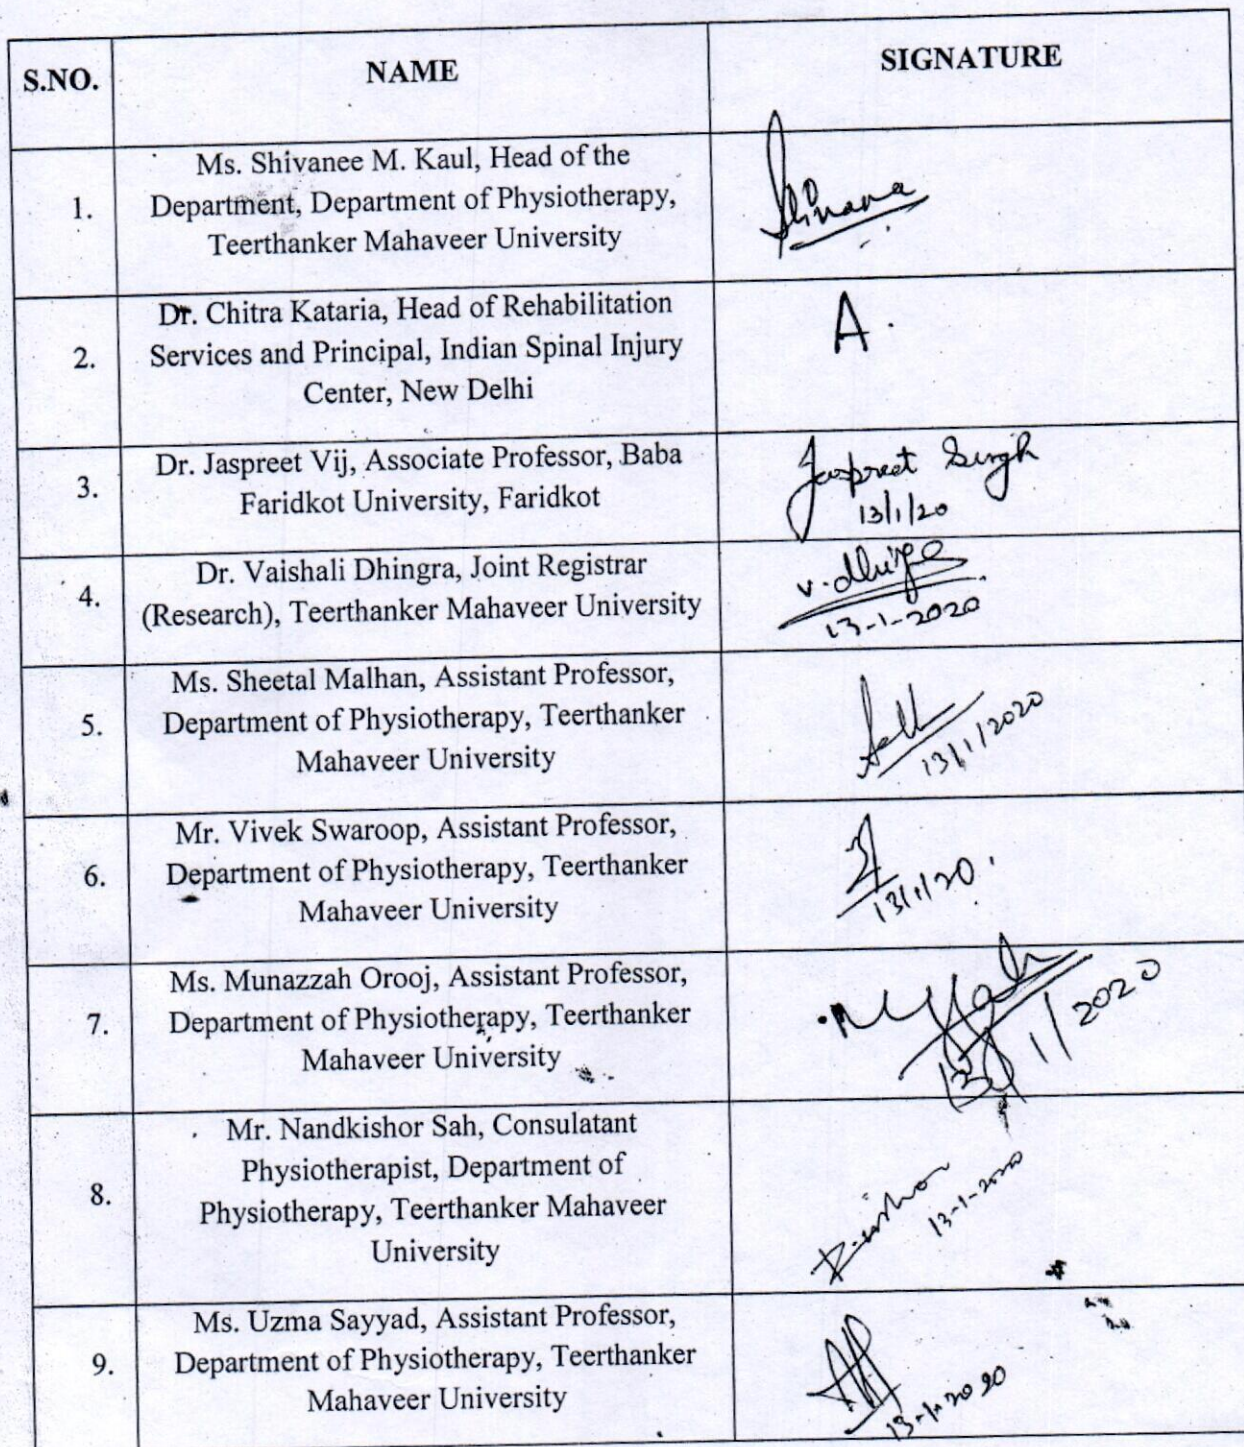 S.NO. NAME SIGNATURE
Ms. Shivanee M. Kaul, Head of the
1. Department, Department of Physiotherapy,
Teerthanker Mahaveer University
Dr. Chitra Kataria, Head of Rehabilitation
2. Services and Principal, Indian Spinal Injury
Center, New Delhi
A.
Dr. Jaspreet Vij, Associate Professor, Baba
3. Faridkot University, Faridkot
Jaspreet Singh
13/1/20
Dr. Vaishali Dhingra, Joint Registrar
4. (Research), Teerthanker Mahaveer University
13-1-2020
Ms. Sheetal Malhan, Assistant Professor,
5. Department of Physiotherapy, Teerthanker
Mahaveer University
13/1/2020
Mr. Vivek Swaroop, Assistant Professor,
6. Department of Physiotherapy, Teerthanker
Mahaveer University
13/1/20
Ms. Munazzah Orooj, Assistant Professor,
7. Department of Physiotherapy, Teerthanker
Mahaveer University
13/1/2020
Mr. Nandkishor Sah, Consulatant
Physiotherapist, Department of
8. Physiotherapy, Teerthanker Mahaveer
University
13-1-2020
Ms. Uzma Sayyad, Assistant Professor,
9. Department of Physiotherapy, Teerthanker
Mahaveer University
13-1-2020